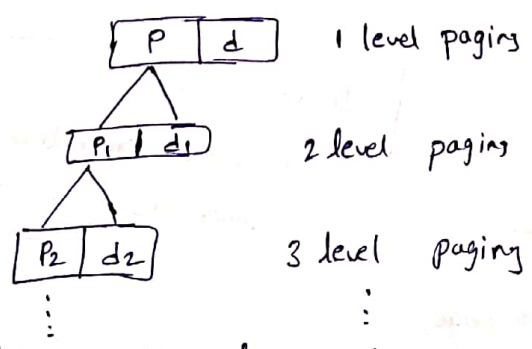 P d 1 level paging
P1 d1 2 level paging
P2 d2 3 level paging